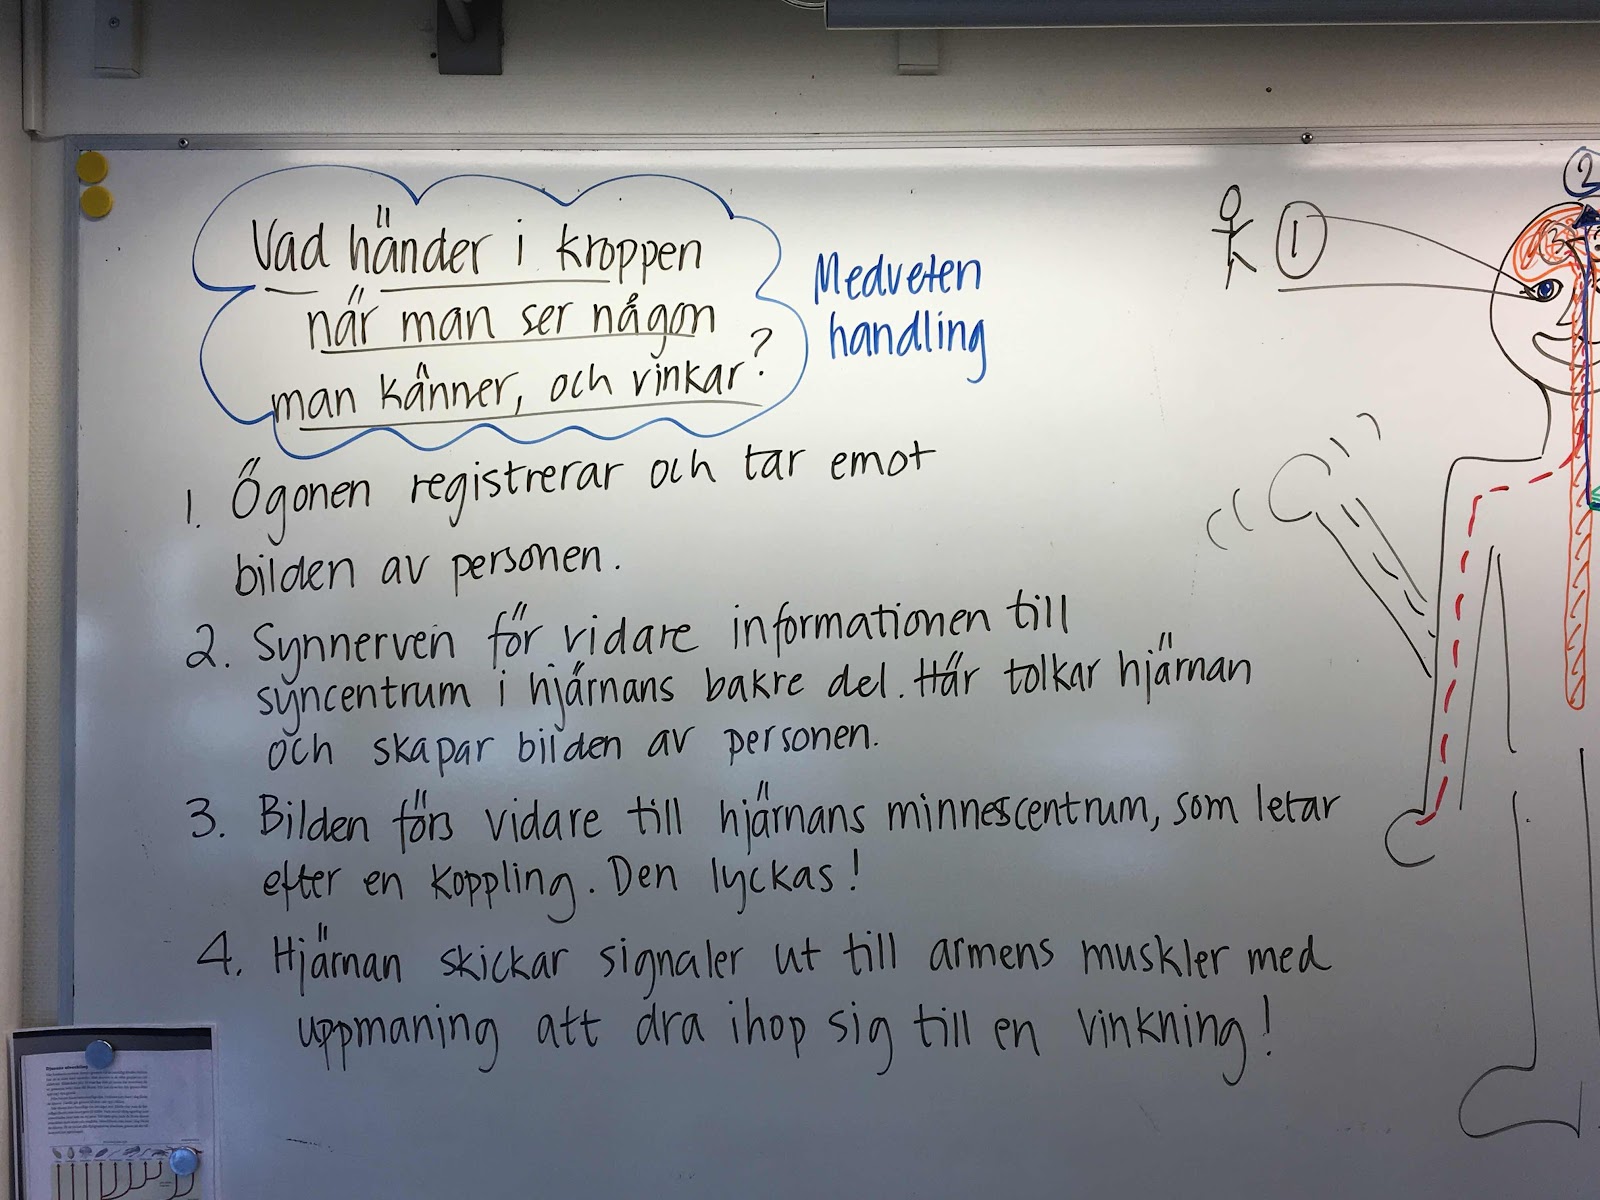 Vad händer i kroppen
när man ser någon
man känner, och vinkar?
Medveten
handling
1. Ögonen registrerar och tar emot
bilden av personen.
2. Synnerven för vidare informationen till
syncentrum i hjärnans bakre del. Här tolkar hjärnan
och skapar bilden av personen.
3. Bilden förs vidare till hjärnans minnescentrum, som letar
efter en koppling. Den lyckas!
4. Hjärnan skickar signaler ut till armens muskler med
uppmaning att dra ihop sig till en vinkning!
1
2
3